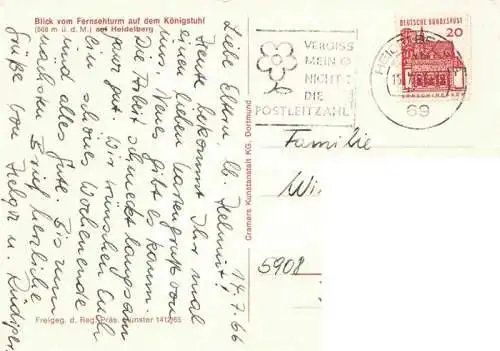 Blick vom Fernsehturm auf dem Königstuhl
(568 m ü. d. M.) auf Heidelberg
14.7.66
Liebe Eltern, lb. Helmut!
Heute bekommt Ihr mal
einen lieben Kartengruß von
uns. Neues gibt es kaum.
Die Arbeit schmeckt langsam
ganz gut. Wir wünschen Euch
ein schönes Wochenende
und alles Gute. Bis zum
nächsten Brief herzliche
Grüße von Helga u. Rüdiger
Freigeg. d. Reg. Präs. Münster 1412/65
Cramers Kunstanstalt KG, Dortmund
VERGISS
MEIN
NICHT
DIE
POSTLEITZAHL
69
DEUTSCHE BUNDESPOST
20
Familie
Wi
5908